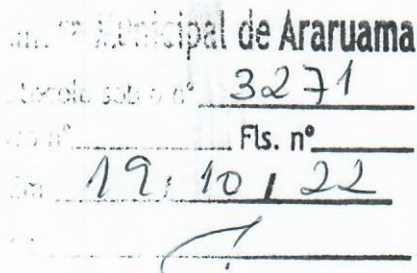 Municipal de Araruama
nº 3271
nº Fls. nº
19, 10, 22